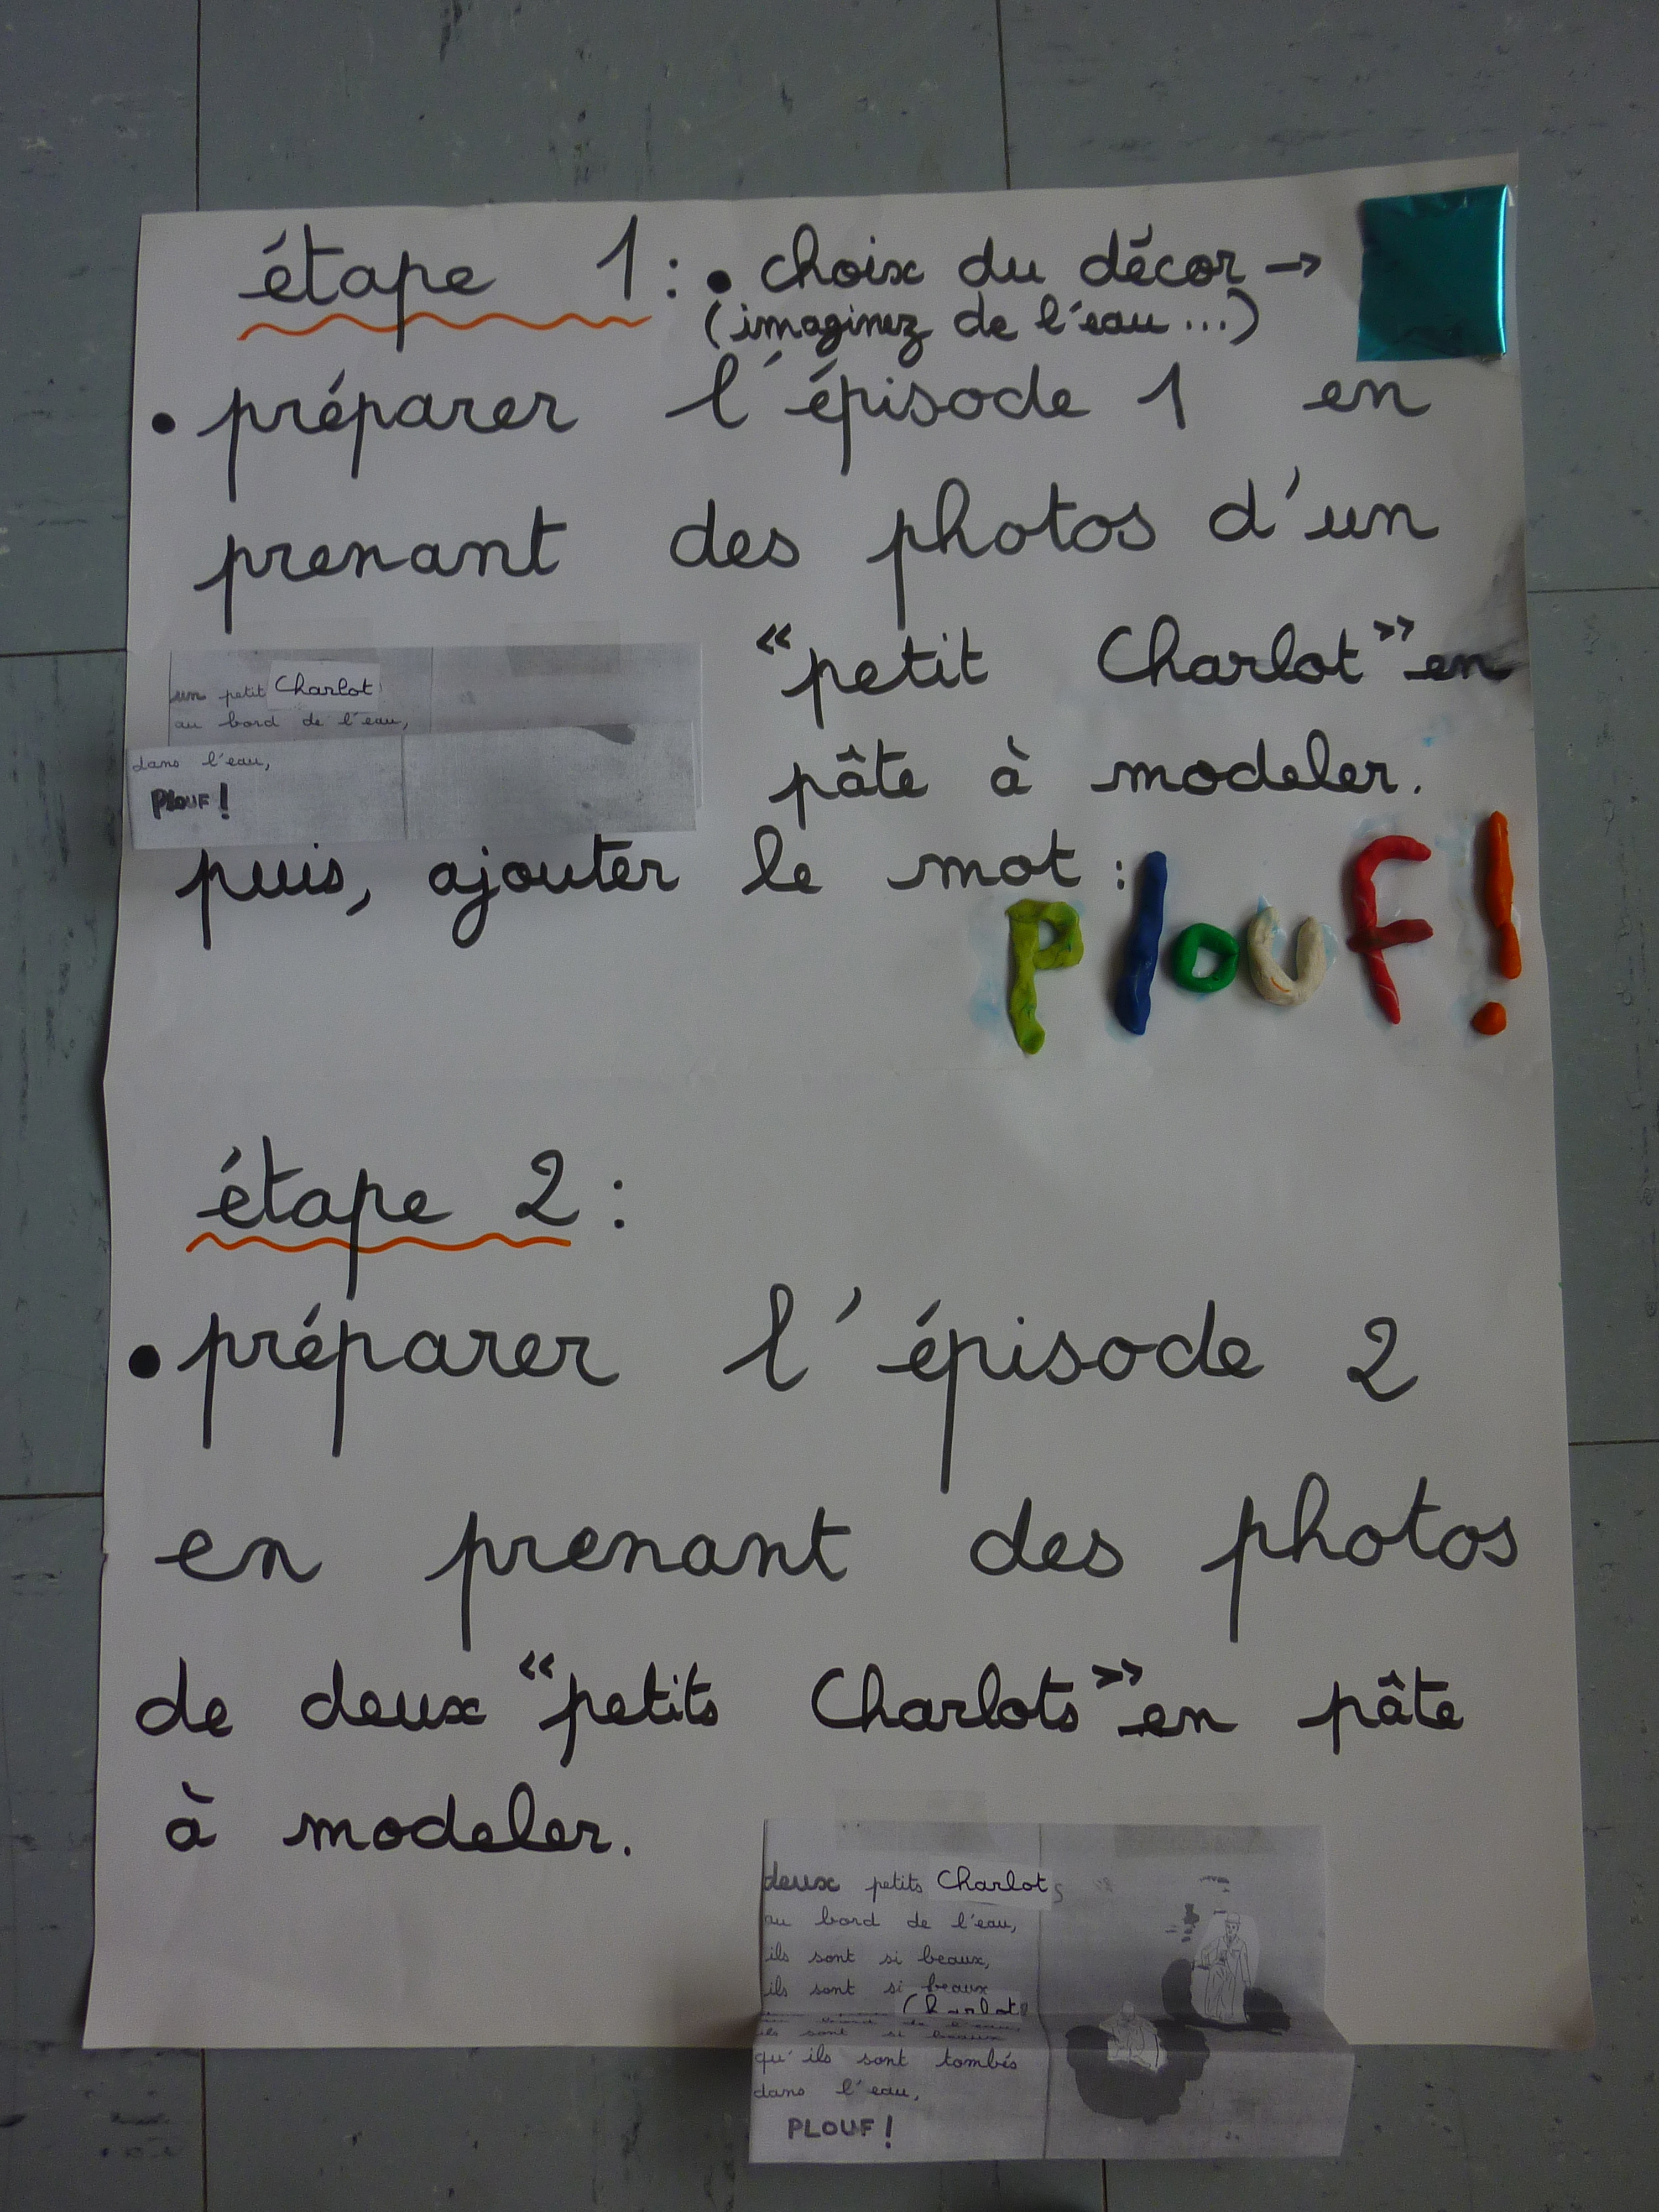 étape 1 : • choix du décor →
(imaginez de l'eau ...)
• préparer l'épisode 1 en
prenant des photos d'un
"petit Charlot" en
pâte à modeler.
un petit Charlot
au bord de l'eau,
dans l'eau,
PLOUF !
puis, ajouter le mot :
PlouF!
étape 2 :
• préparer l'épisode 2
en prenant des photos
de deux "petits Charlots" en pâte
à modeler.
deux petits Charlots
au bord de l'eau,
ils sont si beaux,
ils sont si beaux
Charlots
ils sont si beaux
qu'ils sont tombés
dans l'eau,
PLOUF !